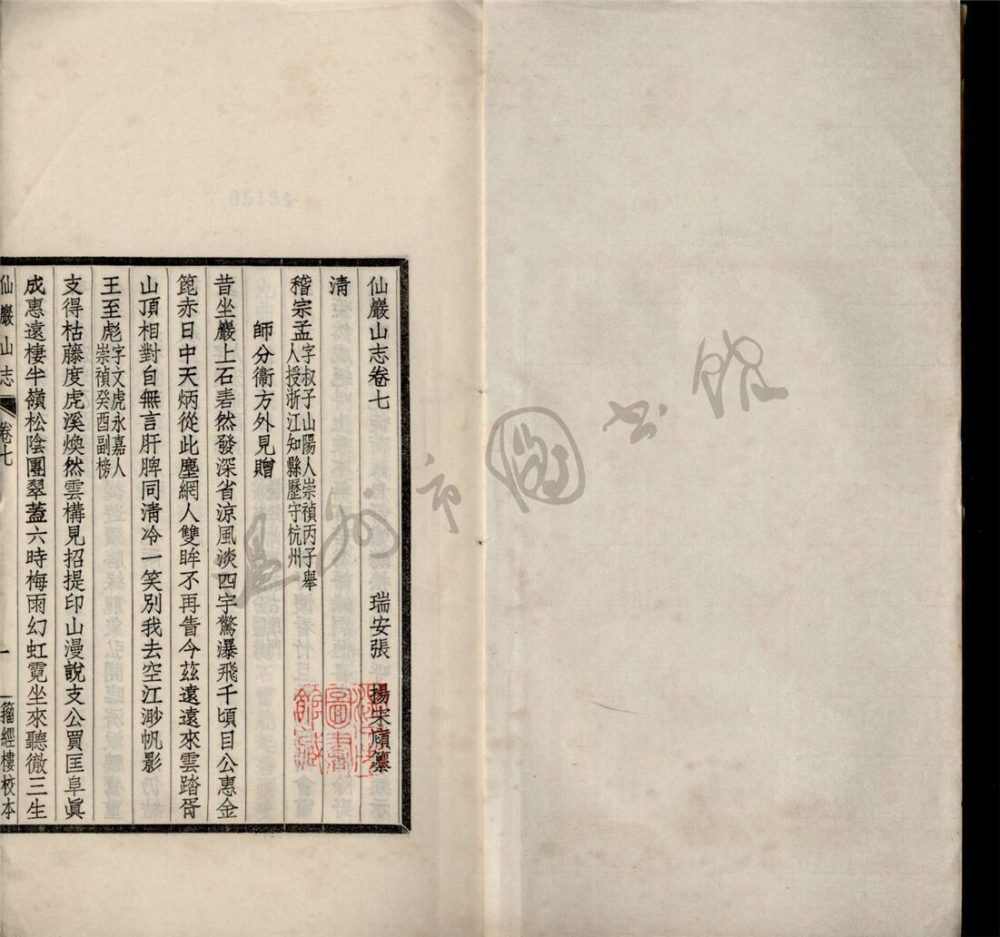 仙巖山志卷七
瑞安張 揚宋廎纂
清
稽宗孟字叔子山陽人崇禎丙子舉
人授浙江知縣歷守杭州
師分衞方外見贈
昔坐巖上石砉然發深省涼風淡四字驚瀑飛千頃目公惠金
箆赤日中天炳從此塵網人雙眸不再眚今茲遠遠來雲踏胥
山頂相對自無言肝脾同淸冷一笑別我去空江渺帆影
王至彪字文虎永嘉人
崇禎癸酉副榜
支得枯藤度虎溪煥然雲構見招提印山漫說支公買匡阜眞
成惠遠棲半嶺松陰團翠蓋六時梅雨幻虹霓坐來聽徹三生
仙巖山志
卷七
一
籀經樓校本
圖書
館藏
05154
州市圖書館